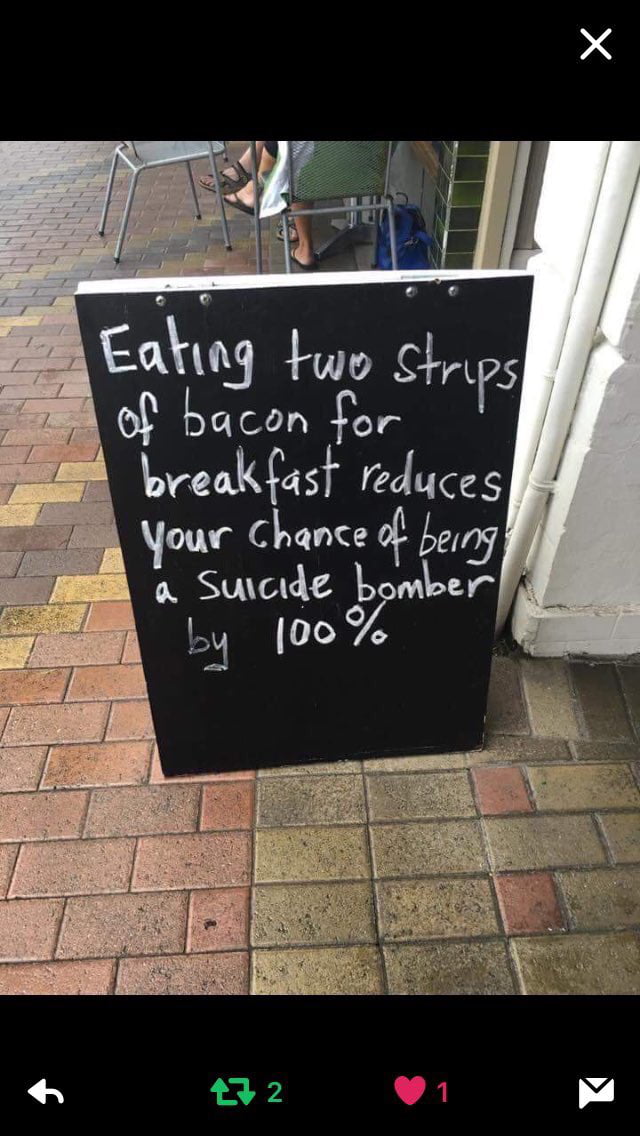 Eating two strips
of bacon for
breakfast reduces
your chance of being
a suicide bomber
by 100%
2
1